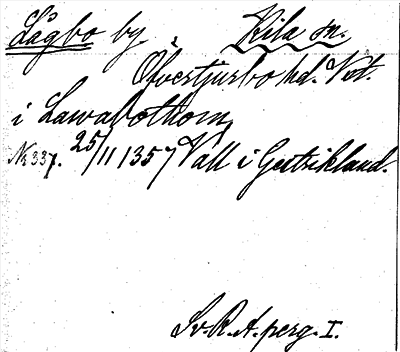 Lågbo by, Kila sn.
Övertjurbo hd. Vstm.
i Lawabothom
No 337. 25/11 1357 Vall i Gestrikland.
Sv. R. A. perg. I.